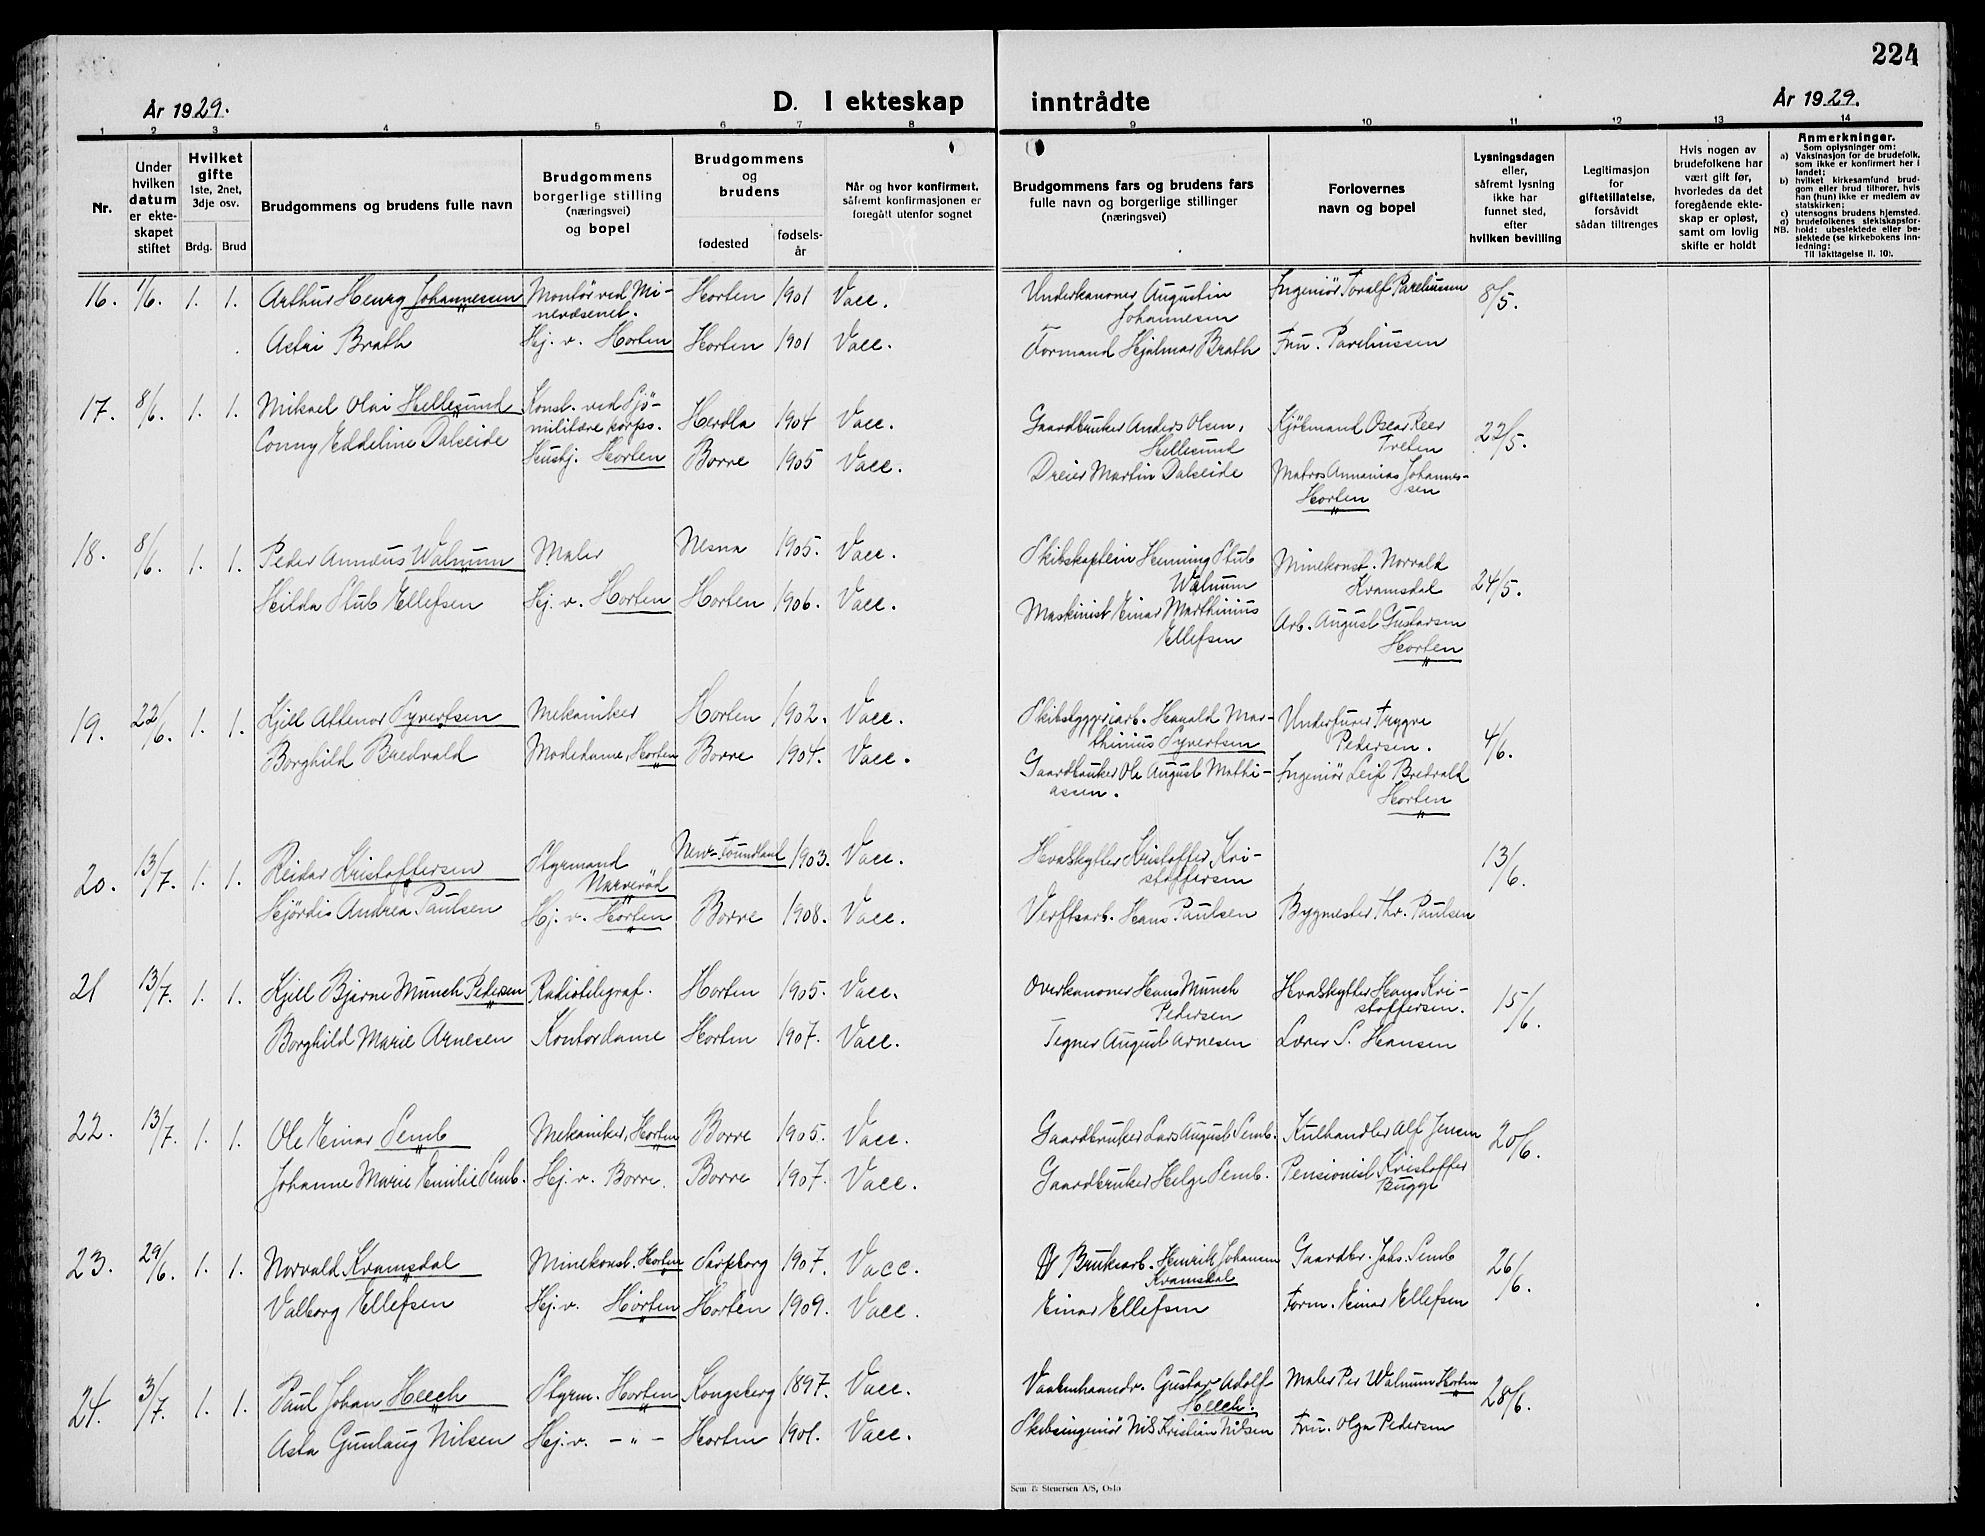 224
År 1929.
D. I ekteskap inntrådte
År 1929.
1 2 3 4 5 6 7 8 9 10 11 12 13 14
Nr.
Under hvilken datum er ekteskapet stiftet
Hvilket gifte
1ste, 2net, 3dje osv.
Brdg. Brud
Brudgommens og brudens fulle navn
Brudgommens borgerlige stilling (næringsvei) og bopel
Brudgommens og brudens
fødested
fødselsår
Når og hvor konfirmert, såfremt konfirmasjonen er foregått utenfor sognet
Brudgommens fars og brudens fars fulle navn og borgerlige stillinger (næringsvei)
Forlovernes navn og bopel
Lysningsdagen eller, såfremt lysning ikke har funnet sted, efter hvilken bevilling
Legitimasjon for giftetillatelse, forsåvidt sådan tiltrenges
Hvis nogen av brudefolkene har vært gift før, hvorledes da det foregående ekteskap er opløst, samt om lovlig skifte er holdt
Anmerkninger.
Som oplysninger om:
a) Vaksinasjon for de brudefolk, som ikke er konfirmert her i landet;
b) hvilket kirkesamfund brudgom eller brud tilhører, hvis han (hun) ikke er medlem av statskirken;
c) utensogns brudens hjemsted.
d) brudefolkenes slektskapsforhold: ubeslektede eller beslektede (se kirkebokens innledning:
NB.
Til iakttagelse II. 10).
16. 1/6. 1. 1. Arthur Henry Johannessen Montör ved Mi-
nevæsenet. Horten 1901 Vacc. Underkanoner Augustin
Johannesen Ingeniör Toralf Pareliussen 8/5.
Astri Brath Hj. v. Horten Horten 1901 Vacc. Formand Hjalmar Brath Fru. Pareliussen
17. 8/6. 1. 1. Mikael Olai Hellesund Konst. ved Sjö-
militære korps. Herdla 1904 Vacc. Gaardbruker Anders Olsen,
Hellesund Kjöbmand Oscar Reer
Tveten 22/5.
Conny Eddeline Dalseide Husbj. Horten Borre 1905 Vacc. Dreier Martin Dalseide Matros Annanias Johannes-
sen
Horten
18. 8/6. 1. 1. Peder Annæus Walnum Maler Nesna 1905. Vacc. Skibskaptein Henning Stub
Walnum Minekonst. Norvald
Kvamsdal 24/5.
Hilda Stub Ellefsen Hj. v. Horten Horten 1906. Vacc. Maskinist Einar Marthinius
Ellefsen Arb. August Gustavsen
Horten
19. 22/6. 1. 1. Kjell Attenor Syvertsen Mekaniker Horten 1902. Vacc. Skibsbyggeriarb. Harald Mar-
thinius Syvertsen Underfurer Trygve
Pedersen. 4/6.
Borghild Bredvald Modedame, Horten Borre 1904. Vacc. Gaardbruker Ole August Mathi-
assen. Ingeniör Leif Bredvald
Horten
20. 13/7. 1. 1. Reidar Kristoffersen Styrmand
Narverød New-Foundland 1903. Vacc. Hvalskytter Kristoffer Kri-
stoffersen 13/6.
Hjördis Andrea Paulsen Hj. v. Horten Borre 1908. Vacc. Verftsarb. Hans Paulsen Bygmester Thv. Paulsen
21 13/7. 1. 1. Kjell Bjarne Munch Pedersen Radiotelegraf. Horten 1905. Vacc. Overkanoner Hans Munch
Pedersen Hvalskytter Hans Kri-
stoffersen. 15/6.
Borghild Marie Arnesen Kontordame Horten 1907. Vacc. Tegner August Arnesen Lærer S. Hansen
22. 13/7. 1. 1. Ole Einar Semb Mekaniker, Horten Borre 1905. Vacc. Gaardbruker Lars August Semb. Kulhandler Alf Jensen 20/6.
Johanne Marie Emilie Semb. Hj. v. Borre. Borre 1907. Vacc. Gaardbruker Helge Semb. Pensionist Kristoffer
Bugge
23. 29/6. 1. 1. Norvald Kvamsdal Minekonst. Horten Sarpborg 1907. Vacc. Bruksarb. Henrik Johansen
Kvamsdal Gaardbr. Johs. Semb 26/6.
Valborg Ellefsen Hj. v. Horten Horten 1909. Vacc. Einar Ellefsen Form. Einar Ellefsen
24. 3/7. 1. 1. Paul Johan Heech Styrm. Horten Kongsberg 1897. Vacc. Vaabenhaandv. Gustav Adolf
Heech. Maler Per Walnum Horten 28/6.
Asta Gunlaug Nilsen Hj. v. -"- Horten 1901. Vacc. Skibsingeniör Nils Kristian Nilsen Fru. Olga Pedersen
Sem & Stenersen A/S, Oslo